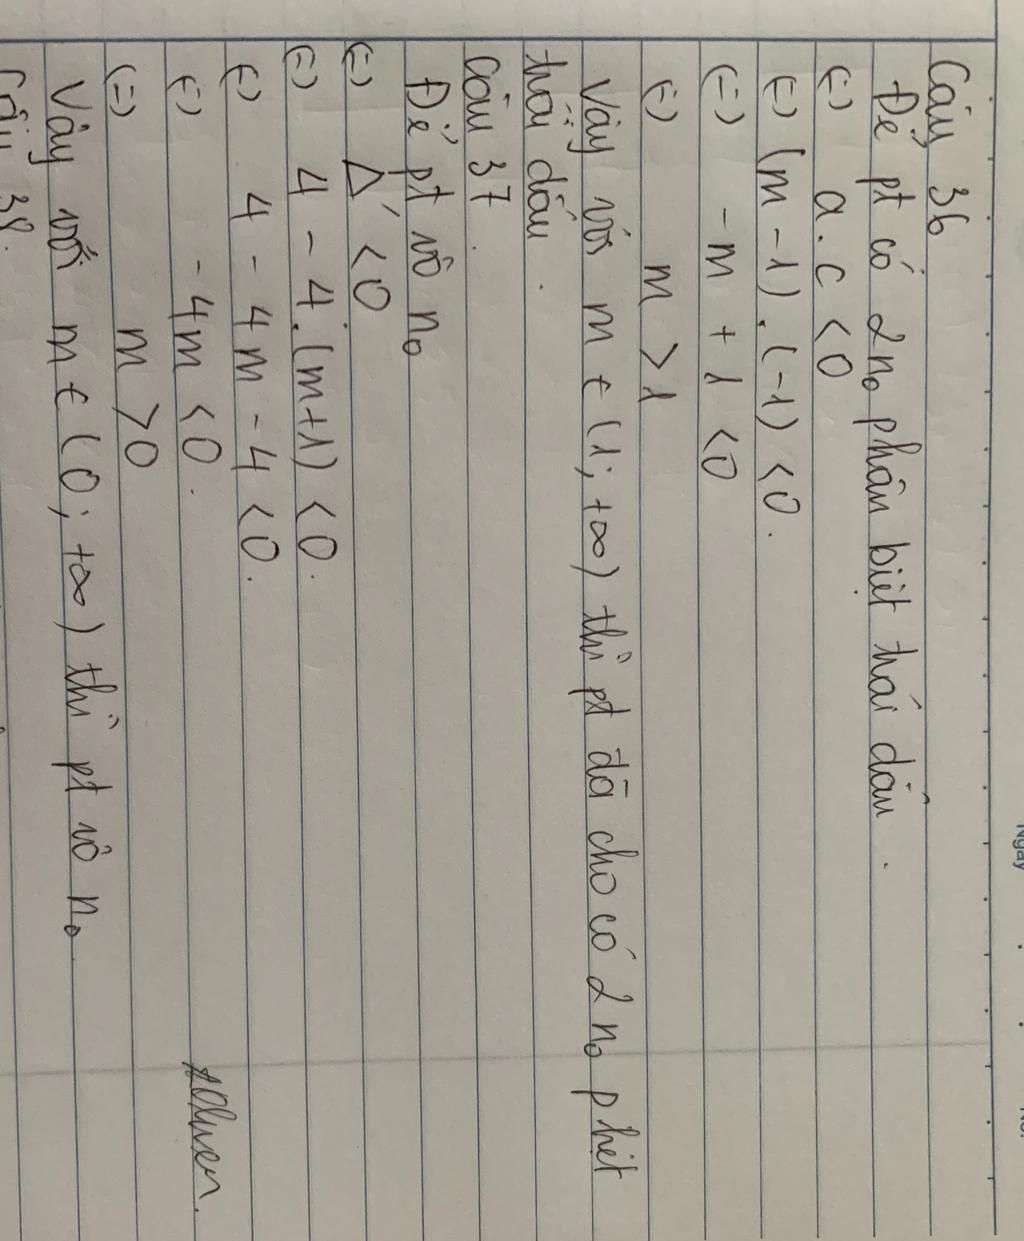 Ngày
No.
Câu 36
Để pt có 2 no phân biệt trái dấu.
(=) a.c < 0
(=) (m - 1).(-1) < 0.
(=) -m + 1 < 0
(=) m > 1
Vậy với m ∈ (1; +∞) thì pt đã cho có 2 no pbiệt
trái dấu.
Câu 37.
Để pt vô no
(=) Δ' < 0
(=) 4 - 4.(m+1) < 0.
(=) 4 - 4m - 4 < 0.
(=) -4m < 0.
(=) m > 0
Vậy với m ∈ (0; +∞) thì pt vô no
Câu 38.